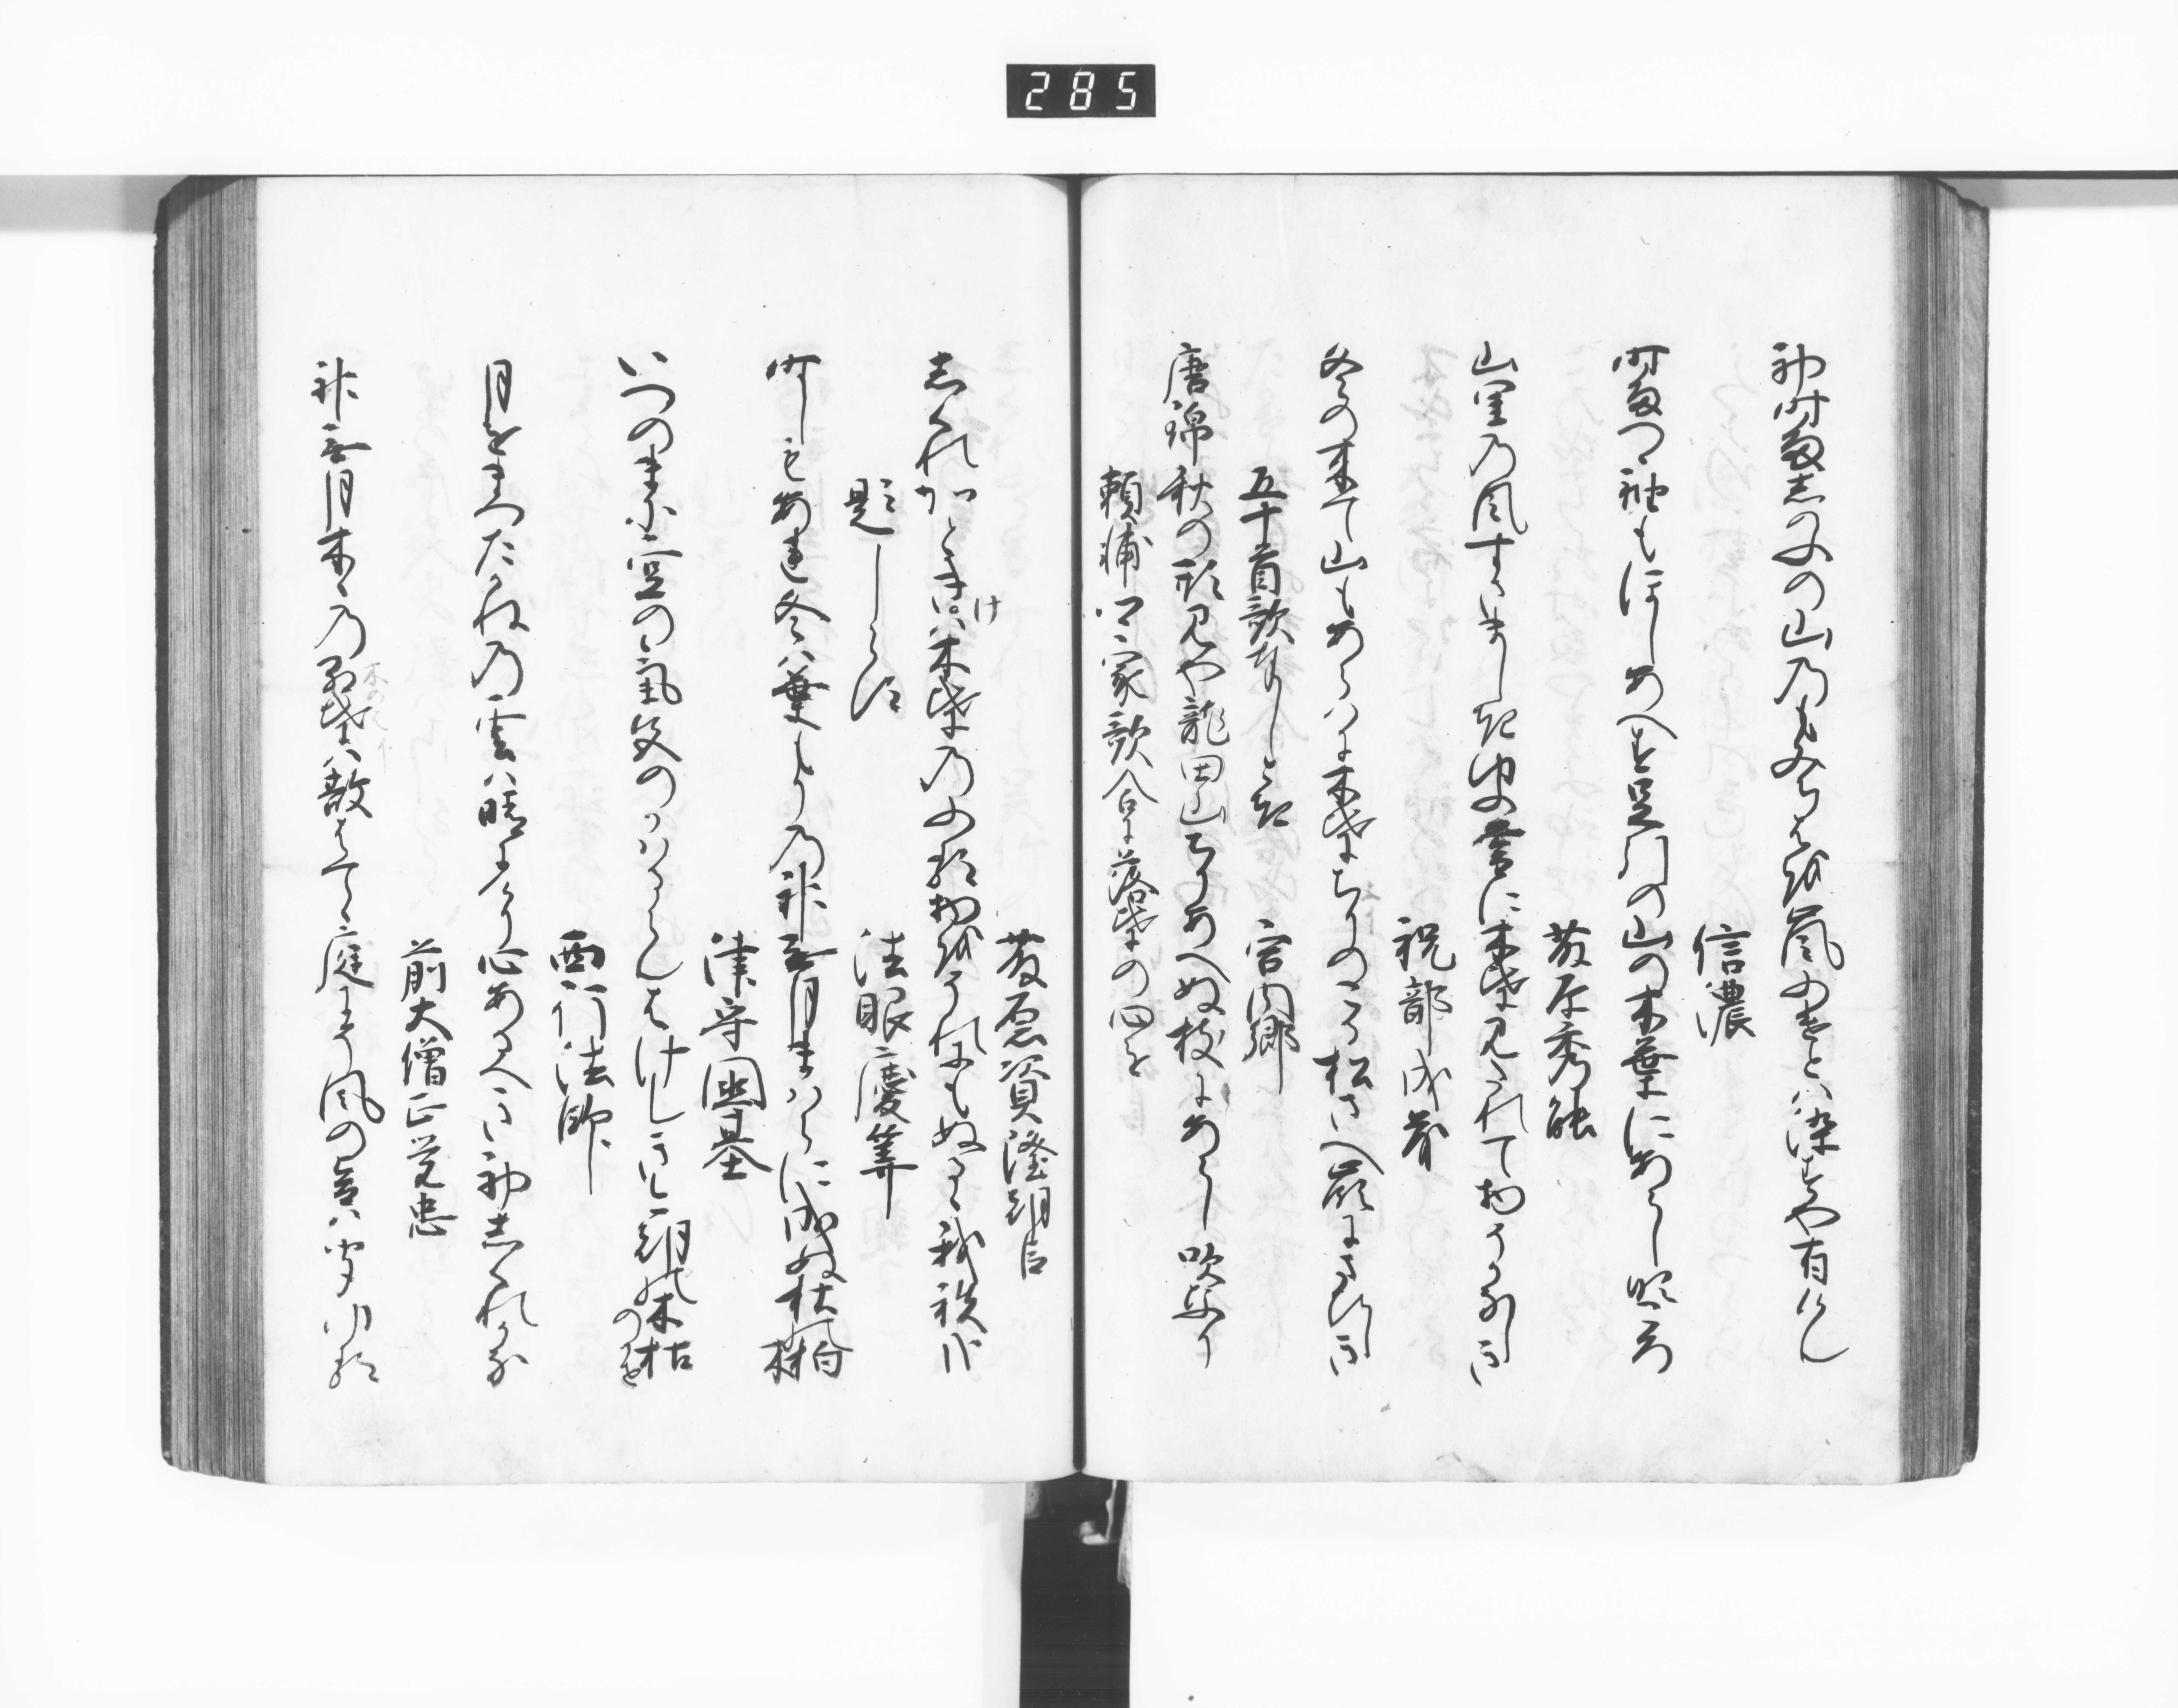 285
初時雨志のふの山乃もみち葉越嵐ふけとハ染すや有けん
信濃
時雨つゝ袖もほしあへす足引の山の木葉にあらし吹ころ
藤原秀能
山里乃風すさましき夕暮に木葉みたれて物うかなしき
祝部成茂
冬の来て山もあらハに木葉ちりのこる松さへ峯にさひしき
五十首歌奉しとき
宮内卿
唐錦秋の形見や龍田山ちりあへぬ枝にあらし吹也
頼輔卿家歌合に落葉の心を
藤原資隆朝臣
しくれかとき
け
は木葉乃ふる物越それにもぬるゝ我袂かな
題しらす
法眼慶算
時しもあれ冬ハ葉もり乃神無月まハらに成ぬ杜の柏木
津守国基
いつのまに空の気色のかハるらんはけしきけさの木枯の風
西行法師
月をまつたかね乃雲ハ晴にけり心あるへき初しくれかな
前大僧正覚忠
神無月木々乃木葉ハ散はてゝ庭にそ風の音ハ聞ゆる